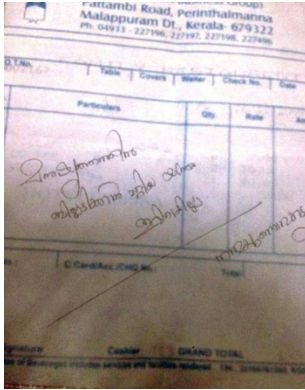 Pattambi Road, Perinthalmanna
Malappuram Dt., Kerala- 679322
Ph: 04933 - 227196, 227197, 227198, 227496
Table Covers Waiter Check No. Date
Particulars Qty. Rate
മനുഷ്യത്വത്തിന്
ബില്ലടിക്കാൻ പറ്റിയ യന്ത്രം
ഇവിടെയില്ല
C.Card/Acc./CHQ No.: Total
Signature Cashier GRAND TOTAL